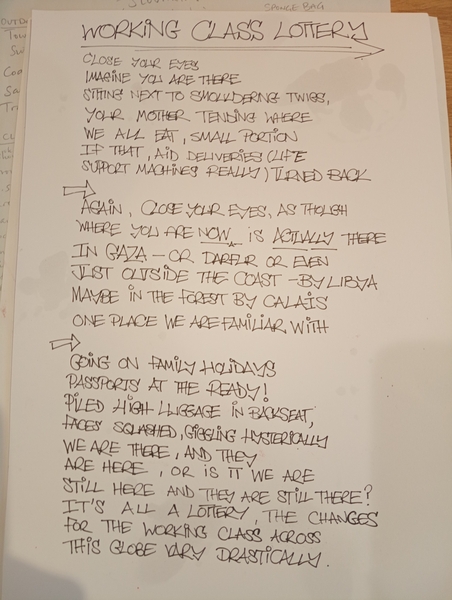 SPONGE BAG
WORKING CLASS LOTTERY
CLOSE YOUR EYES
IMAGINE YOU ARE THERE
SITTING NEXT TO SMOULDERING TWIGS,
YOUR MOTHER TENDING WHERE
WE ALL EAT, SMALL PORTION
IF THAT, AID DELIVERIES (LIFE
SUPPORT MACHINES REALLY) TURNED BACK
AGAIN, CLOSE YOUR EYES, AS THOUGH
WHERE YOU ARE NOW IS ACTUALLY THERE
IN GAZA - OR DARFUR OR EVEN
JUST OUTSIDE THE COAST - BY LIBYA
MAYBE IN THE FOREST BY CALAIS
ONE PLACE WE ARE FAMILIAR WITH
GOING ON FAMILY HOLIDAYS
PASSPORTS AT THE READY!
PILED HIGH LUGGAGE IN BACKSEAT,
FACES SQUASHED, GIGGLING HYSTERICALLY
WE ARE THERE, AND THEY
ARE HERE, OR IS IT WE ARE
STILL HERE AND THEY ARE STILL THERE?
IT'S ALL A LOTTERY, THE CHANGES
FOR THE WORKING CLASS ACROSS
THIS GLOBE VARY DRASTICALLY.